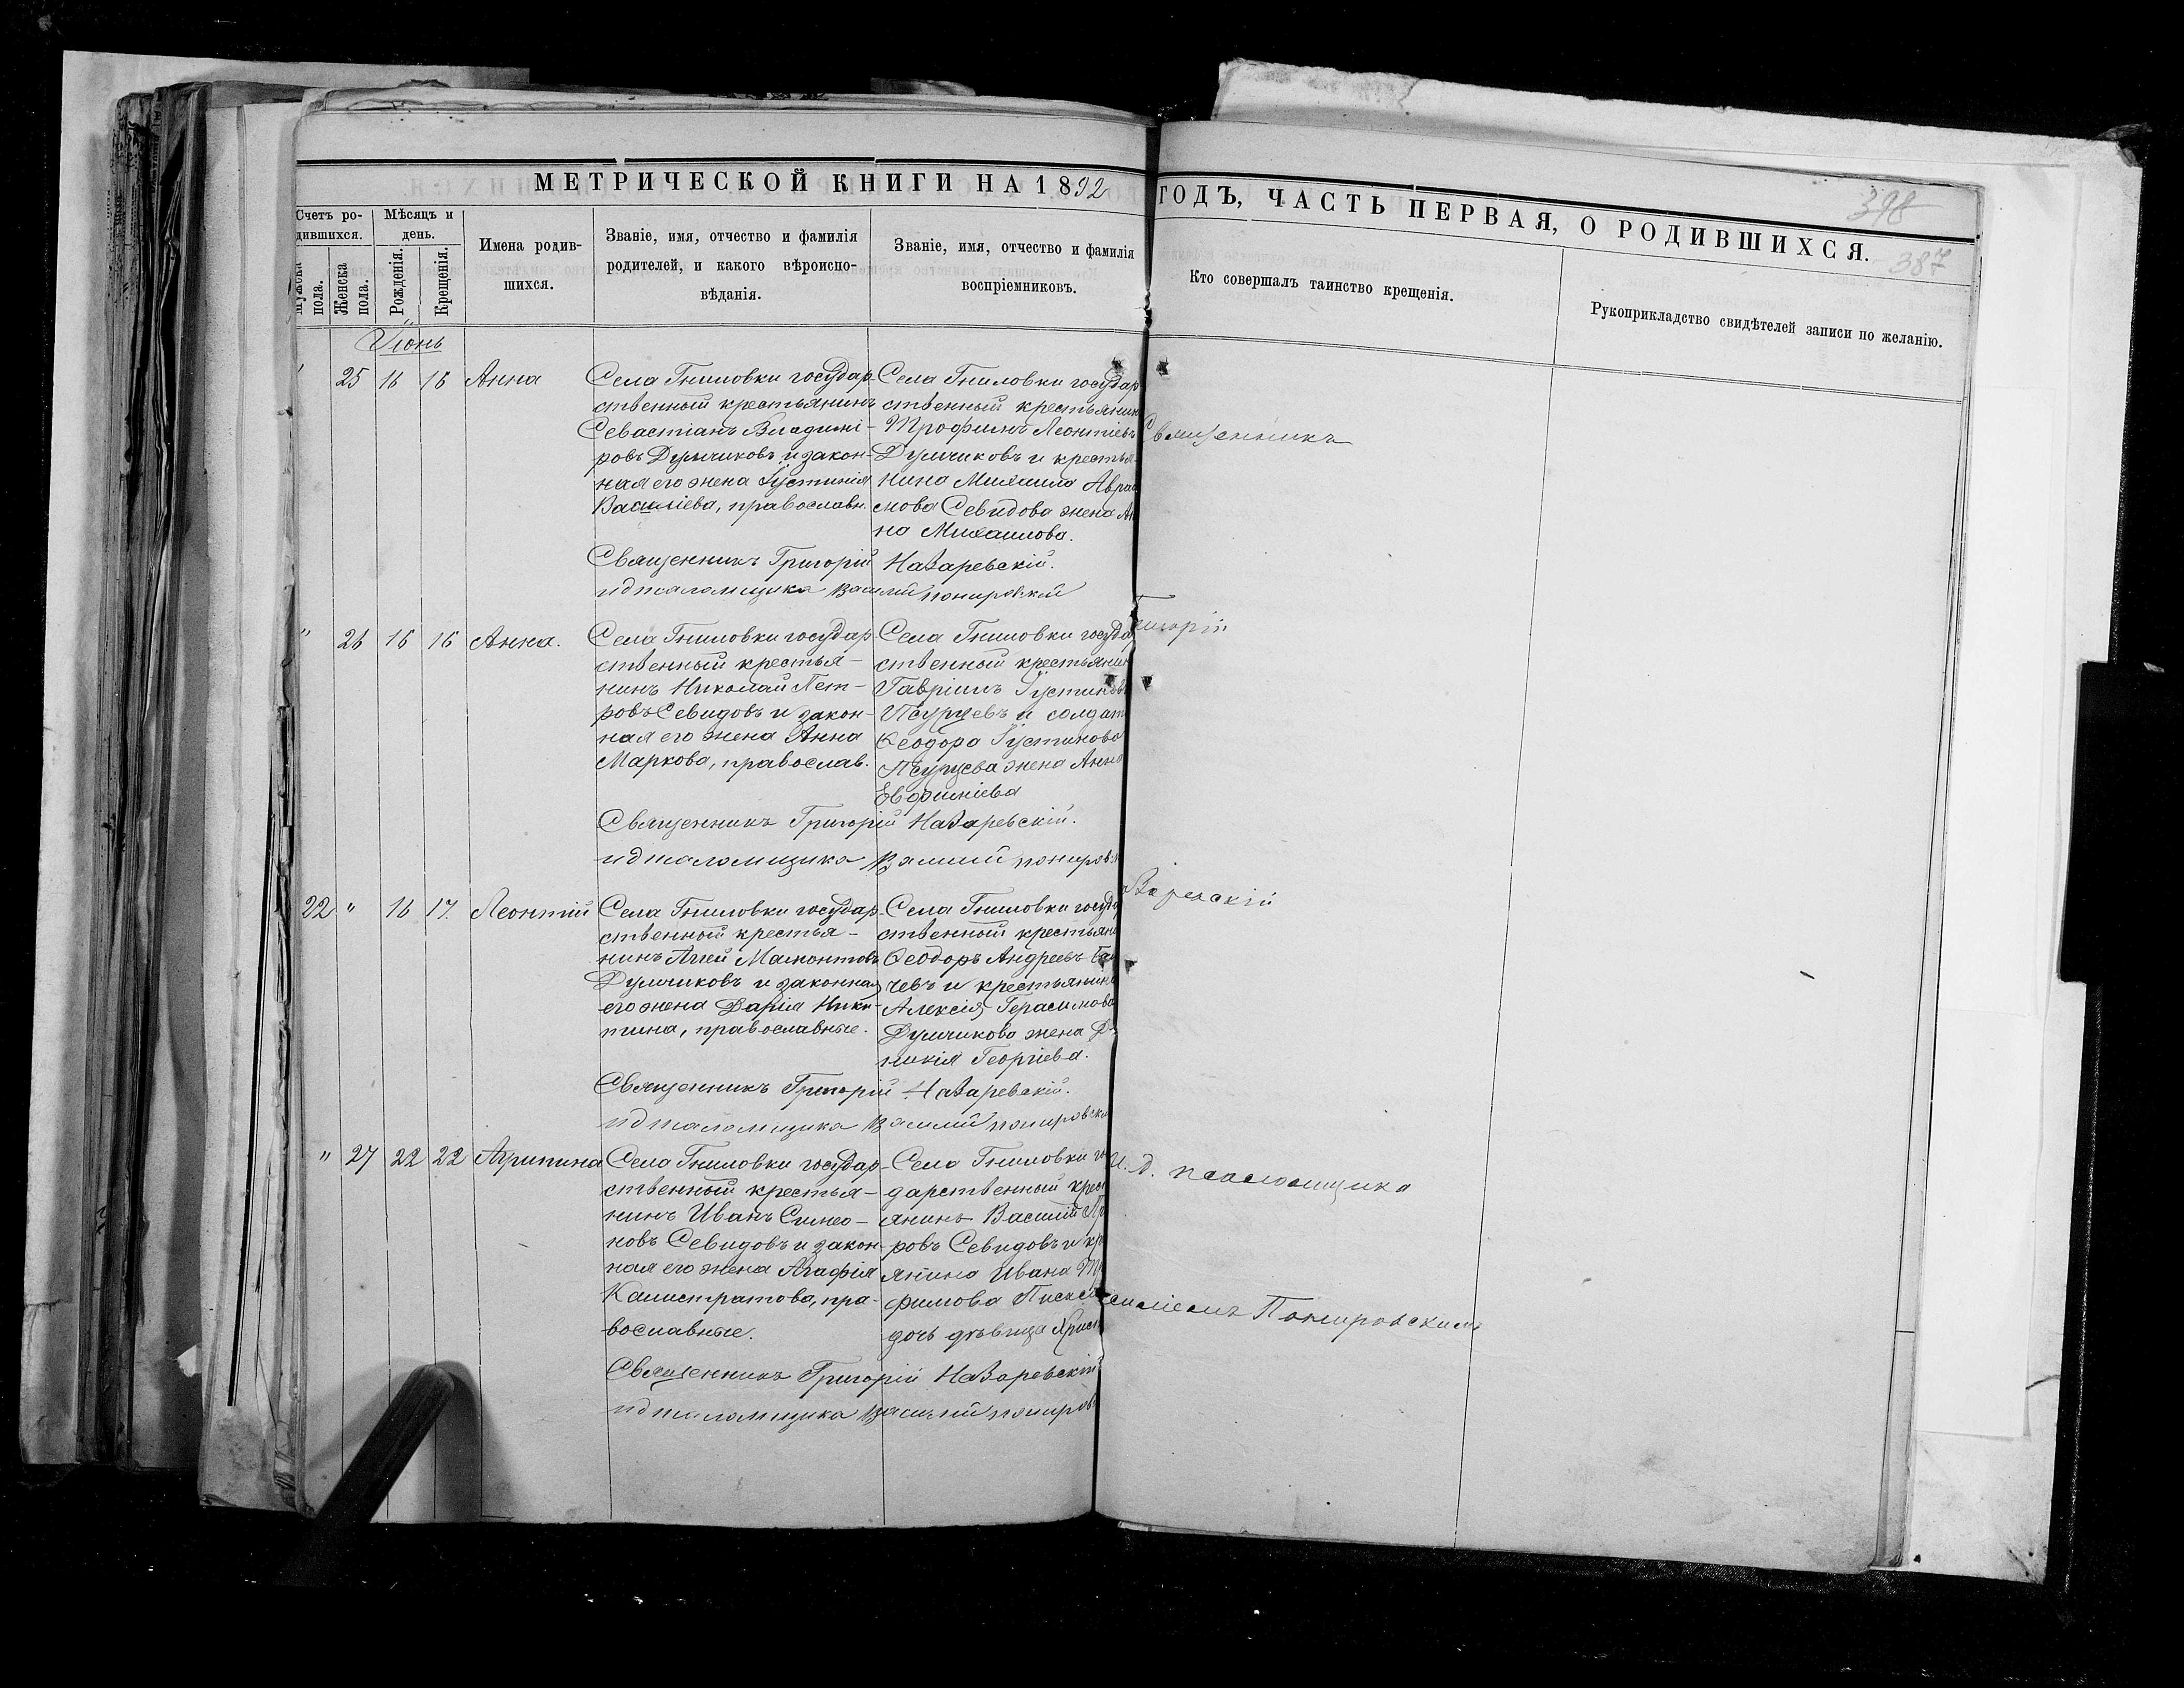 МЕТРИЧЕСКОЙ КНИГИ НА 1892 ГОДЪ, ЧАСТЬ ПЕРВАЯ, О РОДИВШИХСЯ.
398
387
Счетъ ро-
дившихся.
Мужска
пола.
Женска
пола.
Мѣсяцъ и
день.
Рожденія.
Крещенія.
Имена родив-
шихся.
Званіе, имя, отчество и фамилія
родителей, и какого вѣроиспо-
вѣданія.
Званіе, имя, отчество и фамилія
воспріемниковъ.
Кто совершалъ таинство крещенія.
Рукоприкладство свидѣтелей записи по желанію.
Іюнь
25 16 16 Анна
Села Гниловки государ-
ственный крестьянинъ
Севастіанъ Владимі-
ровъ Думчиковъ и закон-
ная его жена Іустинія
Василіева, православн.
Села Гниловки государ
ственный крестьянин
Трофимъ Леонтіевъ
Думчиковъ и крестья-
нина Михаила Авраа
мова Севидова жена Ан
на Михаилова.
Священникъ Григорій Назаревскій.
ид псаломщика Василій Понировский
" 26 16 16 Анна.
Села Гниловки государ
ственный крестья-
нинъ Николай Пет-
ровъ Севидовъ и закон-
ная его жена Анна
Маркова, православ.
Села Гниловки госуда
ственный крестьянин
Гавріилъ Іустиновъ
Псурцевъ и солдат
Ѳеодора Іустинова
Псурцева жена Анна
Евфиміева
Священникъ Григорій Назаревскій.
ид псаломщика Василий Понировск
22 " 16 17. Леонтій
Села Гниловки государ-
ственный крестья-
нинъ Агей Мамонтовъ
Думчиковъ и законная
его жена Дарія Ники-
тина, православные.
Села Гниловки госуда
ственный крестьяни
Ѳеодоръ Андреевъ
чевъ и крестьянина
Алексія Герасимова
Думчикова жена
никія Георгіева.
Священникъ Григорій Назаревскій.
ид псаломщика Василий Понировски
" 27 22 22 Агрипина
Села Гниловки государ-
ственный крестья-
нинъ Иванъ Симео-
новъ Севидовъ и закон-
ная его жена Агафія
Калистратова, пра-
вославные.
Села Гниловки го
дарственный крес
янинъ Василий
ровъ Севидовъ и кр
янина Ивана
фимова
дочь дѣвица Христ
Священникъ Григорій Назаревскій
ид псаломщика Василий Пониров
Священникъ
Григорій
заревскій
И. д. псаломщика
силіемъ Понировскимъ